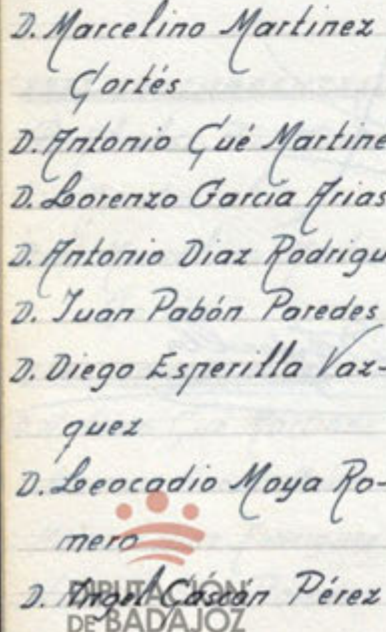 D. Marcelino Martinez
Cortés
D. Antonio Cué Martine
D. Lorenzo Garcia Arias
D. Antonio Diaz Rodrigu
D. Juan Pabón Paredes
D. Diego Esperilla Vaz-
quez
D. Leocadio Moya Ro-
mero
D. Angel Cascón Pérez
DIPUTACIÓN
DE BADAJOZ